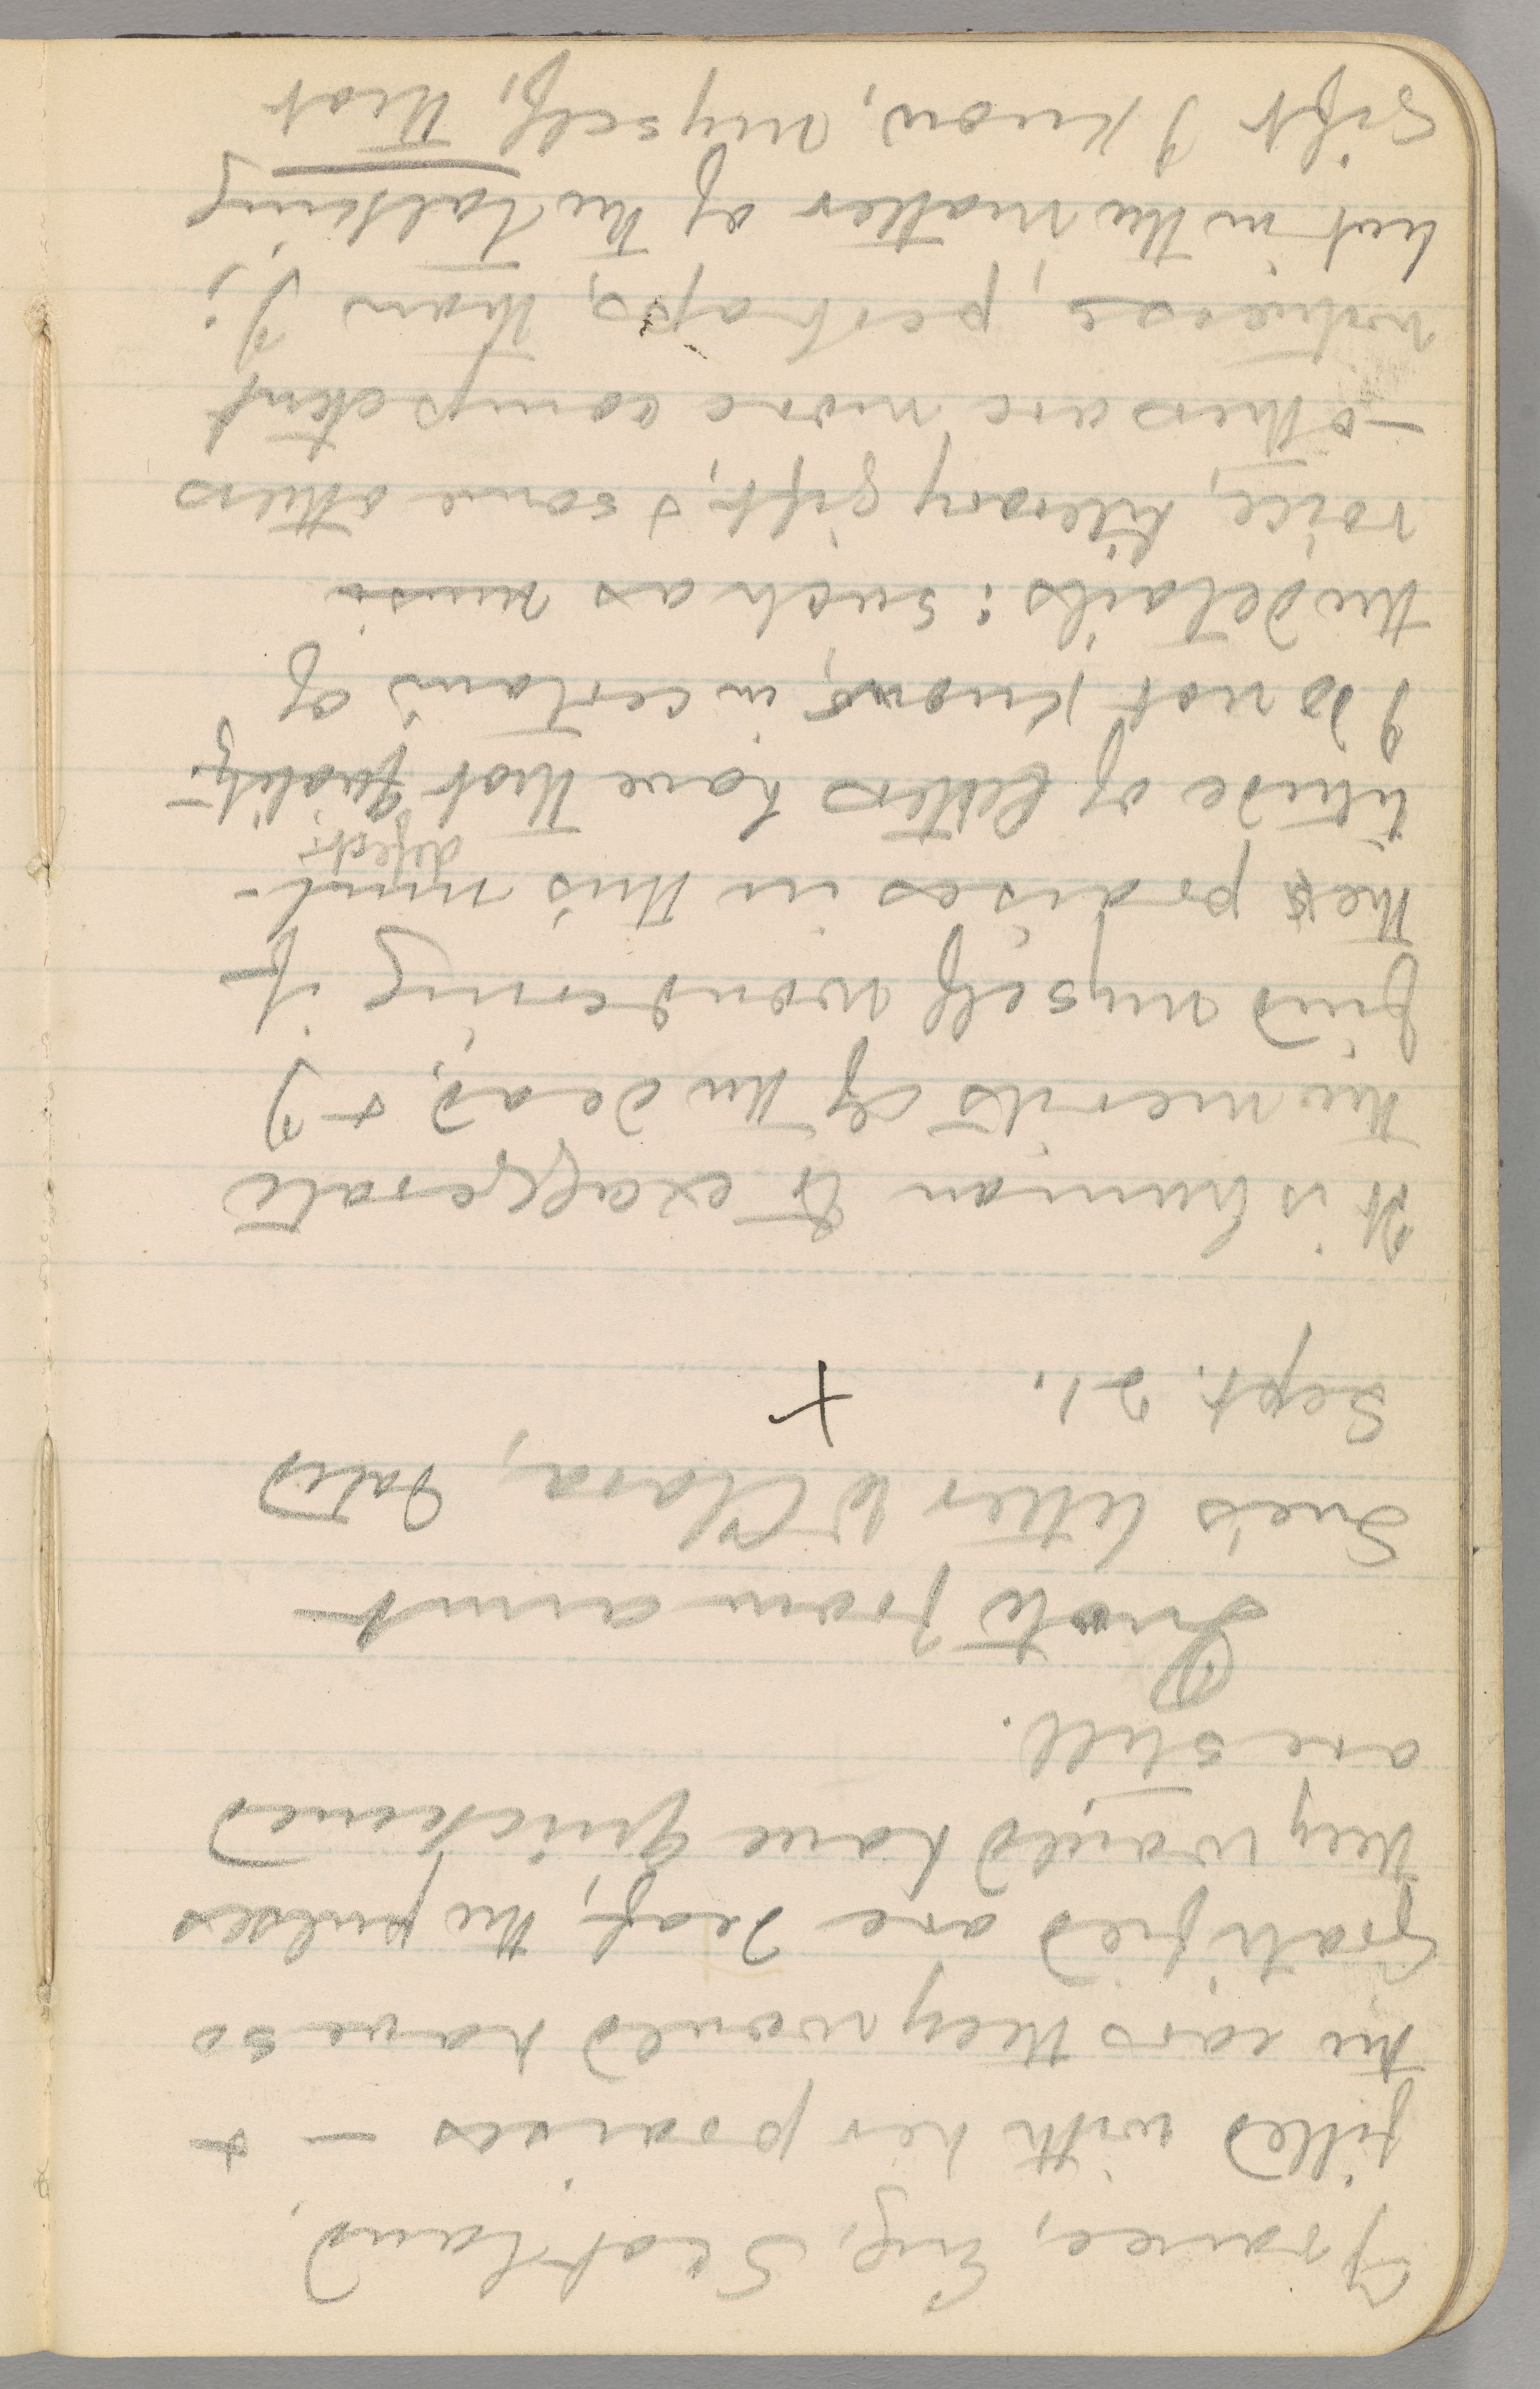 France, Eng, Scotland,
filled with her praises — &
the ears they would have so
gratified are deaf, the pulses
they would have quickened
are still.
Quote from aunt
Sue's letter to Clara, dated
Sept. 21. +
It is human to exaggerate
the merits of the dead, & I
find myself wondering if
the praises in this mul-
defect.
titude of letters have that quality.
I do not know, in certain of
the details: such as music
voice, literary gift, & some others
— others are more competent
witnesses, perhaps, than I;
but in the matter of the talking
gift I know, myself, that